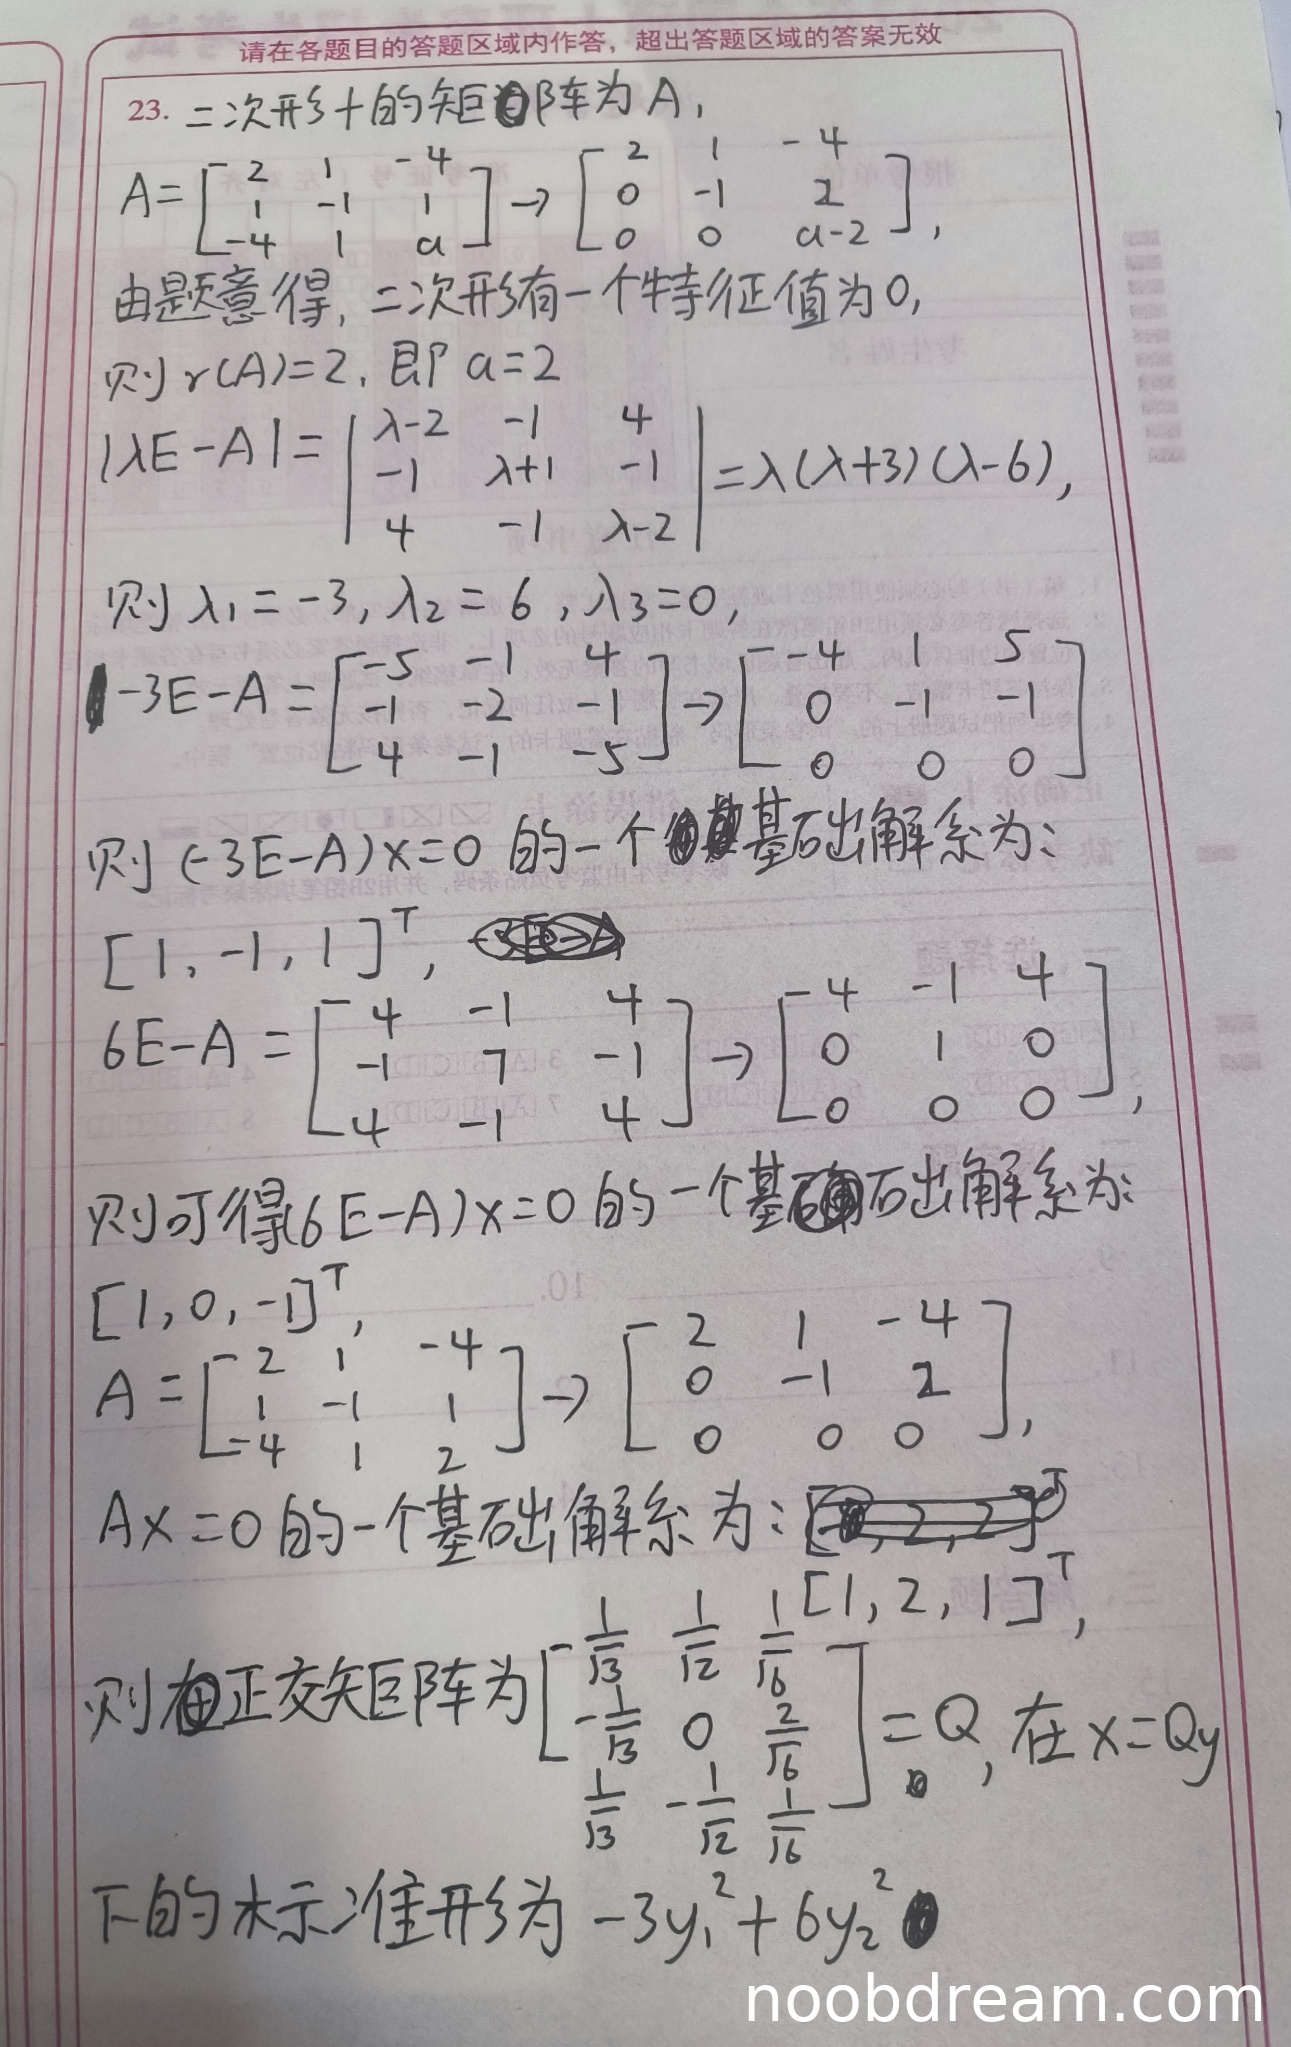 请在各题目的答题区域内作答，超出答题区域的答案无效
23. 二次形f的矩阵为A，
A = [2 1 -4; 1 -1 1; -4 1 a] → [2 1 -4; 0 -1 2; 0 0 a-2]，
由题意得，二次形有一个特征值为0，
则 r(A)=2，即 a=2
|λE-A| = |λ-2 -1 4; -1 λ+1 -1; 4 -1 λ-2| = λ(λ+3)(λ-6)，
则 λ₁=-3, λ₂=6, λ₃=0，
-3E-A = [-5 -1 4; -1 -2 -1; 4 -1 -5] → [-4 1 5; 0 -1 -1; 0 0 0]
则 (-3E-A)x=0 的一个基础解系为：
[1, -1, 1]ᵀ，
6E-A = [4 -1 4; -1 7 -1; 4 -1 4] → [4 -1 4; 0 1 0; 0 0 0]，
则可得(6E-A)x=0的一个基础解系为：
[1, 0, -1]ᵀ，
A = [2 1 -4; 1 -1 1; -4 1 2] → [2 1 -4; 0 -1 2; 0 0 0]，
Ax=0的一个基础解系为：
[1, 2, 1]ᵀ，
则正交矩阵为 [1/√3 1/√2 1/√6; -1/√3 0 2/√6; 1/√3 -1/√2 1/√6] = Q，在 x=Qy
下的标准形为 -3y₁²+6y₂²
noobdream.com